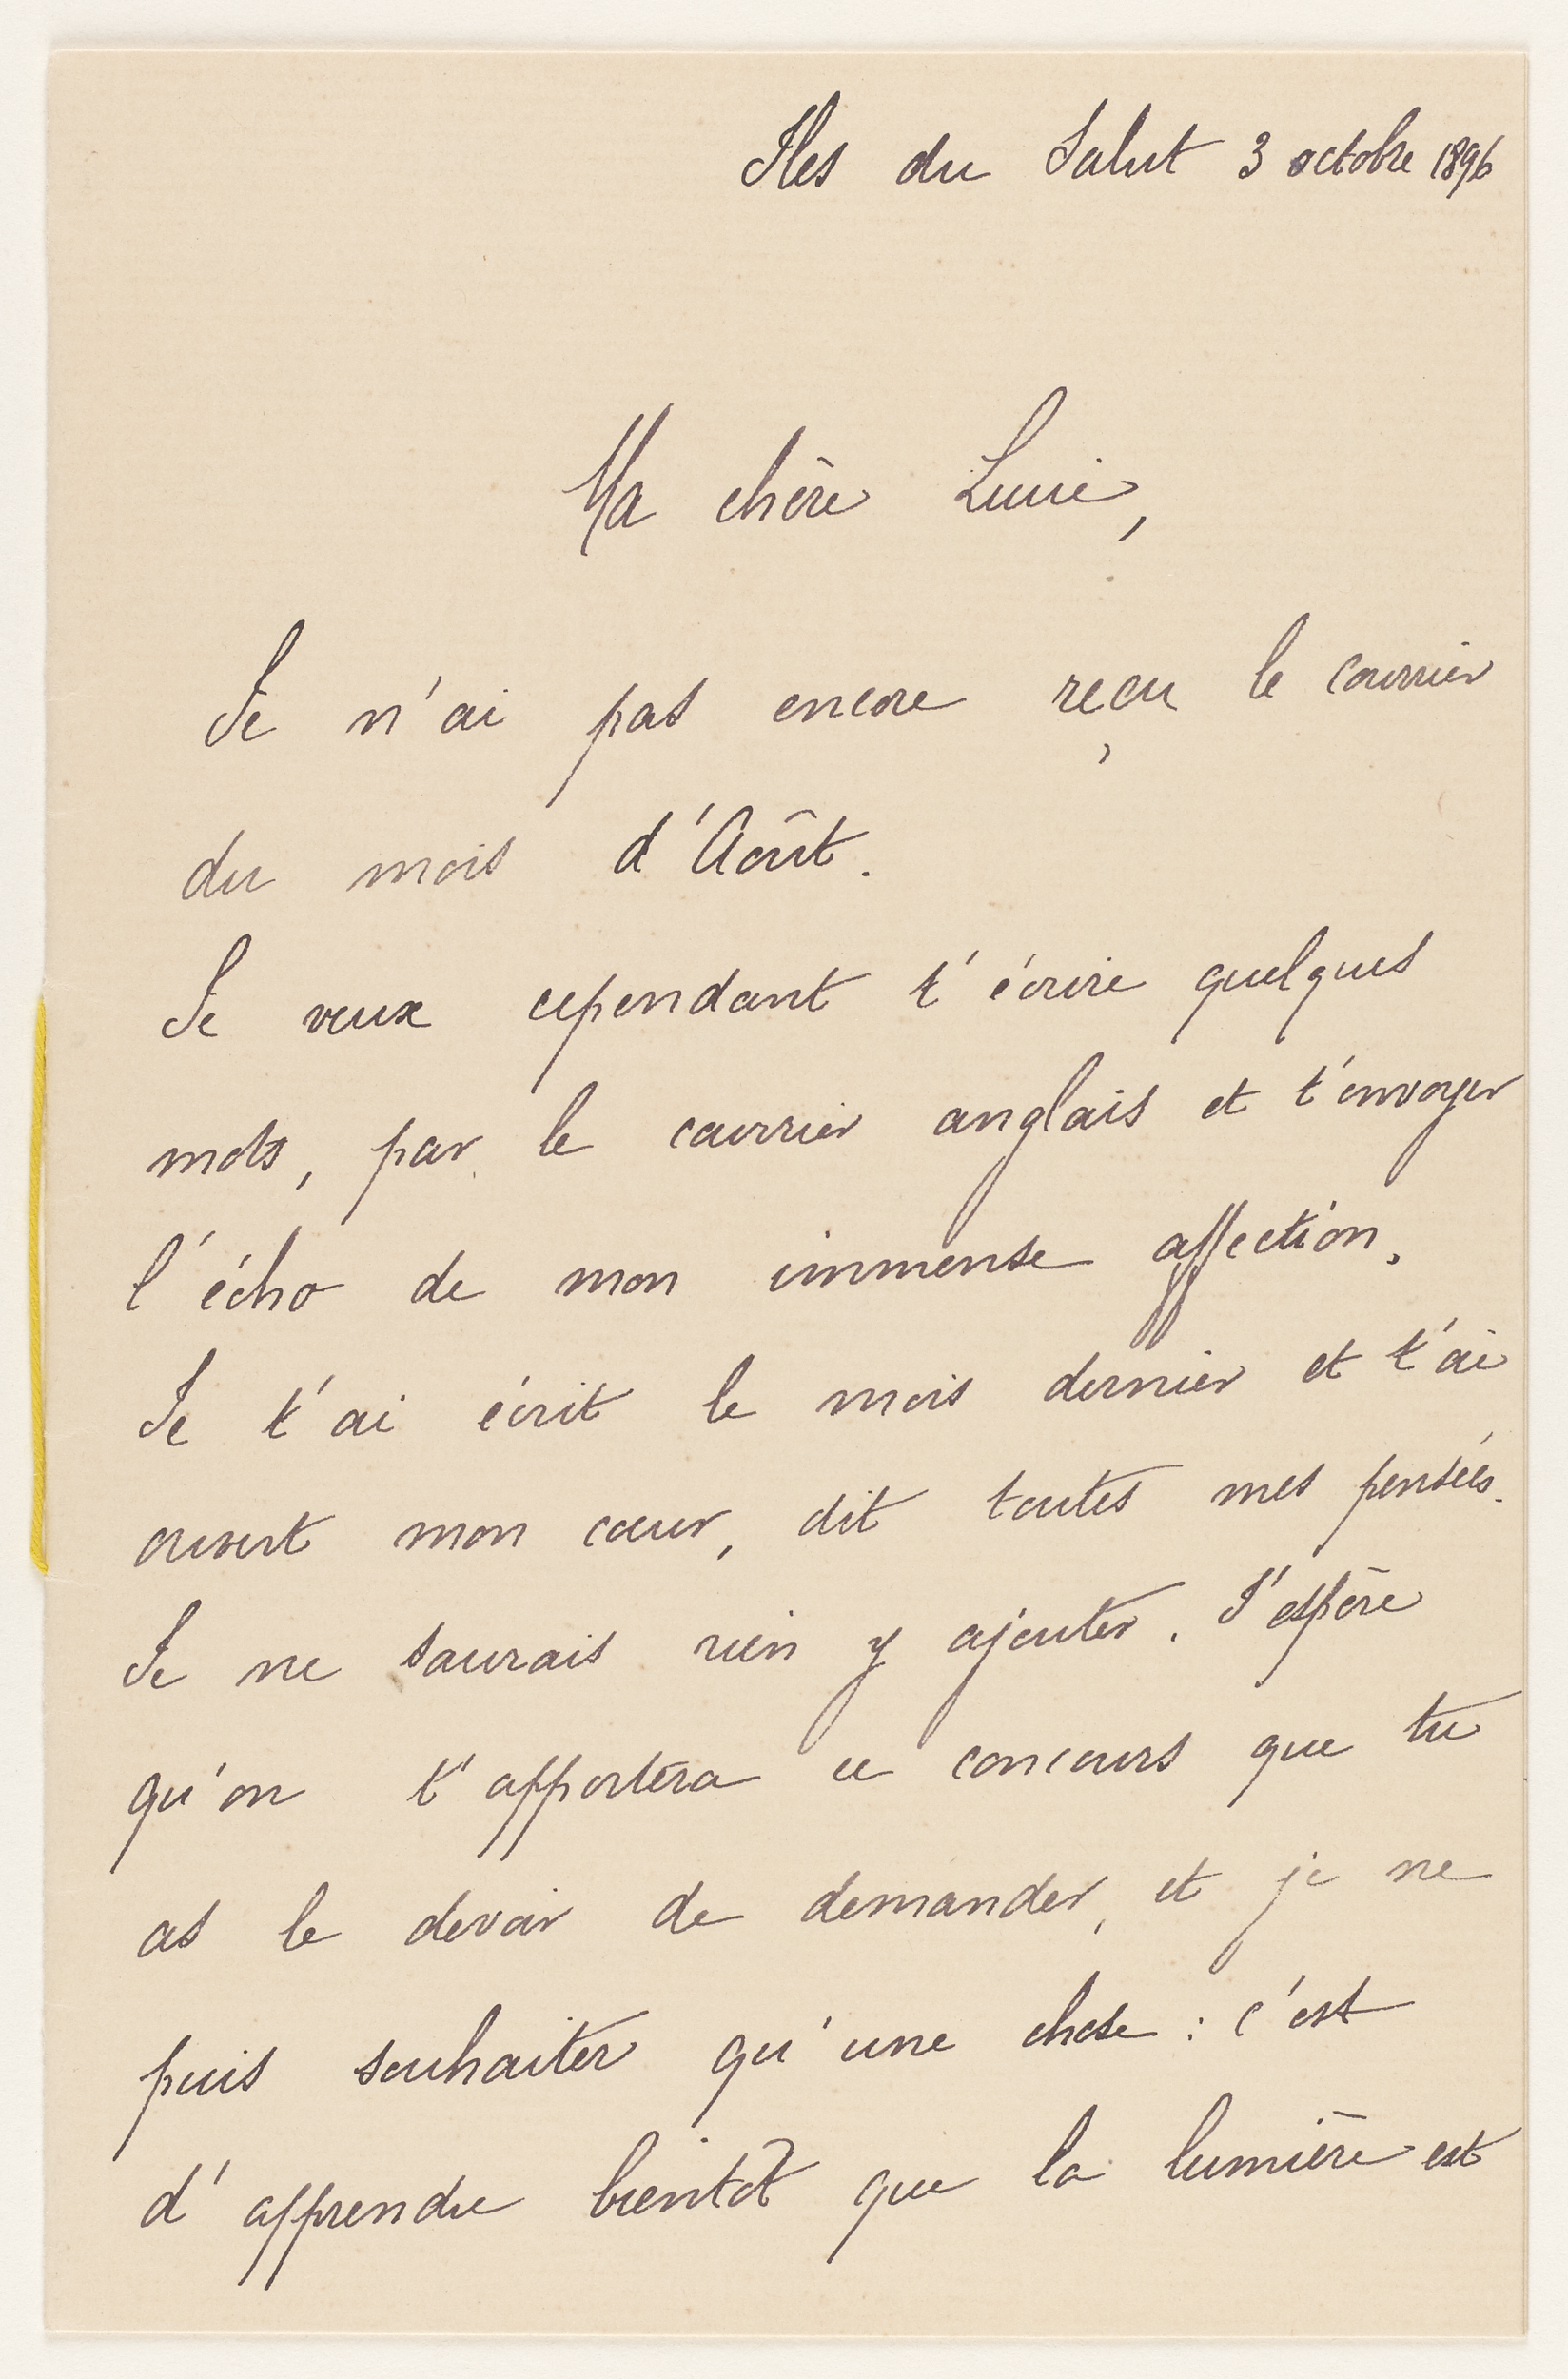 Iles du Salut 3 octobre 1896
Ma chère Lucie,
Je n'ai pas encore reçu le courrier
du mois d'Août.
Je veux cependant t'écrire quelques
mots, par le courrier anglais et t'envoyer
l'écho de mon immense affection.
Je t'ai écrit le mois dernier et t'ai
ouvert mon cœur, dit toutes mes pensées.
Je ne saurais rien y ajouter. J'espère
qu'on t'apportera ce concours que tu
as le devoir de demander, et je ne
puis souhaiter qu'une chose : c'est
d'apprendre bientôt que la lumière est